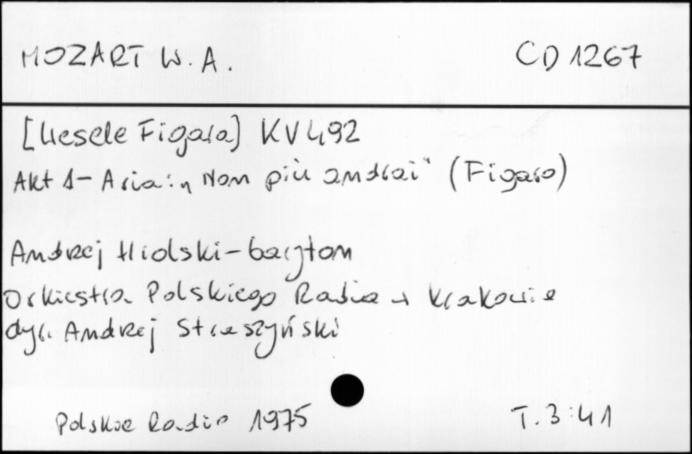 MOZART W. A. CD 1267
[Wesele Figara] KV 492
Akt 1 - Aria: „Non più andrai" (Figaro)
Andrzej Hiolski - baryton
Orkiestra Polskiego Radia w Krakowie
dyr. Andrzej Straszyński
Polskie Radio 1975 T. 3:41